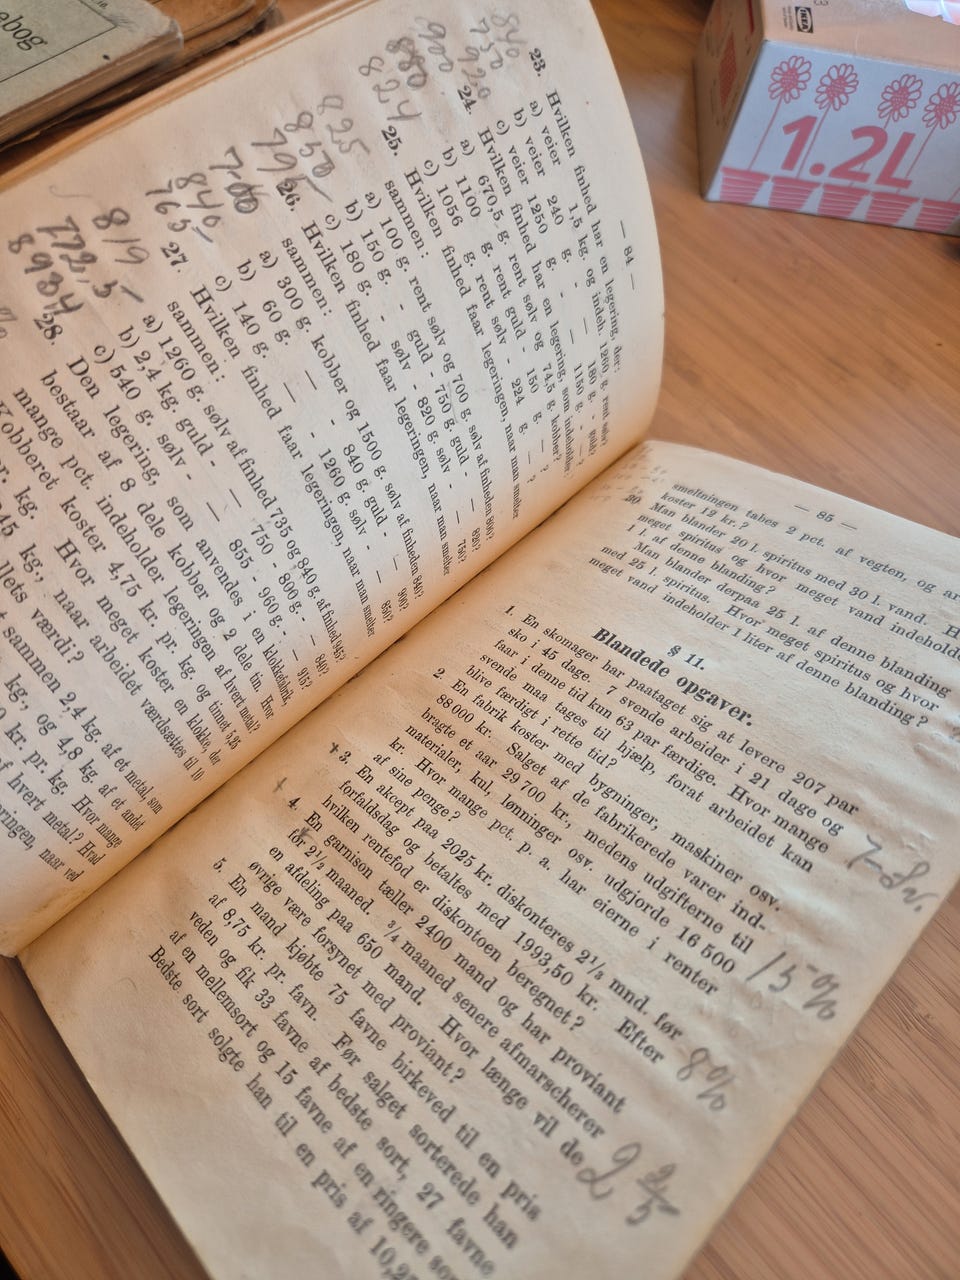 ebog
IKEA
1.2L
— 84 —
23. Hvilken finhed har en legering, der:
a) veier 1,5 kg. og indeh. 1260 g. rent sølv?
b) veier 240 g. - — 180 g. - guld?
c) veier 1250 g. - — 1150 g. - — ?
24. Hvilken finhed har en legering, som indeholder
a) 670,5 g. rent sølv og 74,5 g. kobber?
b) 1100 g. rent guld - 150 g. — ?
c) 1056 g. rent sølv - 224 g. — ?
25. Hvilken finhed faar legeringen, naar man smelter
sammen:
a) 100 g. rent sølv og 700 g. sølv af finheden 800?
b) 150 g. - guld - 750 g. guld - — 820?
c) 180 g. - sølv - 820 g. sølv - — 750?
26. Hvilken finhed faar legeringen, naar man smelter
sammen:
a) 300 g. kobber og 1500 g. sølv af finheden 840?
b) 60 g. — - 840 g. guld - — 900?
c) 140 g. — - 1260 g. sølv - — 850?
27. Hvilken finhed faar legeringen, naar man smelter
sammen:
a) 1260 g. sølv af finhed 735 og 840 g. af finhed 945?
b) 2,4 kg. guld - — 750 - 800 g. - — 840?
c) 540 g. sølv - — 855 - 960 g. - — 915?
28. Den legering, som anvendes i en klokkefabrik,
bestaar af 8 dele kobber og 2 dele tin. Hvor
mange pct. indeholder legeringen af hvert metal?
Kobberet koster 4,75 kr. pr. kg. og tinnet 5,25
kr. kg. Hvor meget koster en klokke, der
45 kg., naar arbeidet værdsættes til 10
llets værdi?
sammen 2,4 kg. af et metal, som
kg., og 4,8 kg. af et andet
kr. pr. kg. Hvor mange
f hvert metal? Hvad
ringen, naar ved
840
750
920
900
880
824
825
850
795
700
840
765
819
772,5
898
— 85 —
smeltningen tabes 2 pct. af vegten, og ar
koster 12 kr.?
Man blander 20 l. spiritus med 30 l. vand. H
meget spiritus og hvor meget vand indeholde
1 l. af denne blanding?
Man blander derpaa 25 l. af denne blanding
med 25 l. spiritus. Hvor meget spiritus og hvor
meget vand indeholder 1 liter af denne blanding?
§ 11.
Blandede opgaver.
1. En skomager har paataget sig at levere 207 par
sko i 45 dage. 7 svende arbeider i 21 dage og
faar i denne tid kun 63 par færdige. Hvor mange
svende maa tages til hjælp, forat arbeidet kan
blive færdigt i rette tid?
7-8sv.
2. En fabrik koster med bygninger, maskiner osv.
88 000 kr. Salget af de fabrikerede varer ind-
bragte et aar 29 700 kr., medens udgifterne til
materialer, kul, lønninger osv. udgjorde 16 500
kr. Hvor mange pct. p. a. har eierne i renter
af sine penge?
15%
3. En akcept paa 2025 kr. diskonteres 2⅓ mnd. før
forfaldsdag og betaltes med 1993,50 kr. Efter
hvilken rentefod er diskontoen beregnet?
8%
4. En garnison tæller 2400 mand og har proviant
for 2½ maaned. ¾ maaned senere afmarscherer
en afdeling paa 650 mand. Hvor længe vil de
øvrige være forsynet med proviant?
2 2/5
5. En mand kjøbte 75 favne birkeved til en pris
af 8,75 kr. pr. favn. Før salget sorterede han
veden og fik 33 favne af bedste sort, 27 favne
af en mellemsort og 15 favne af en ringere sort
Bedste sort solgte han til en pris af 10,25